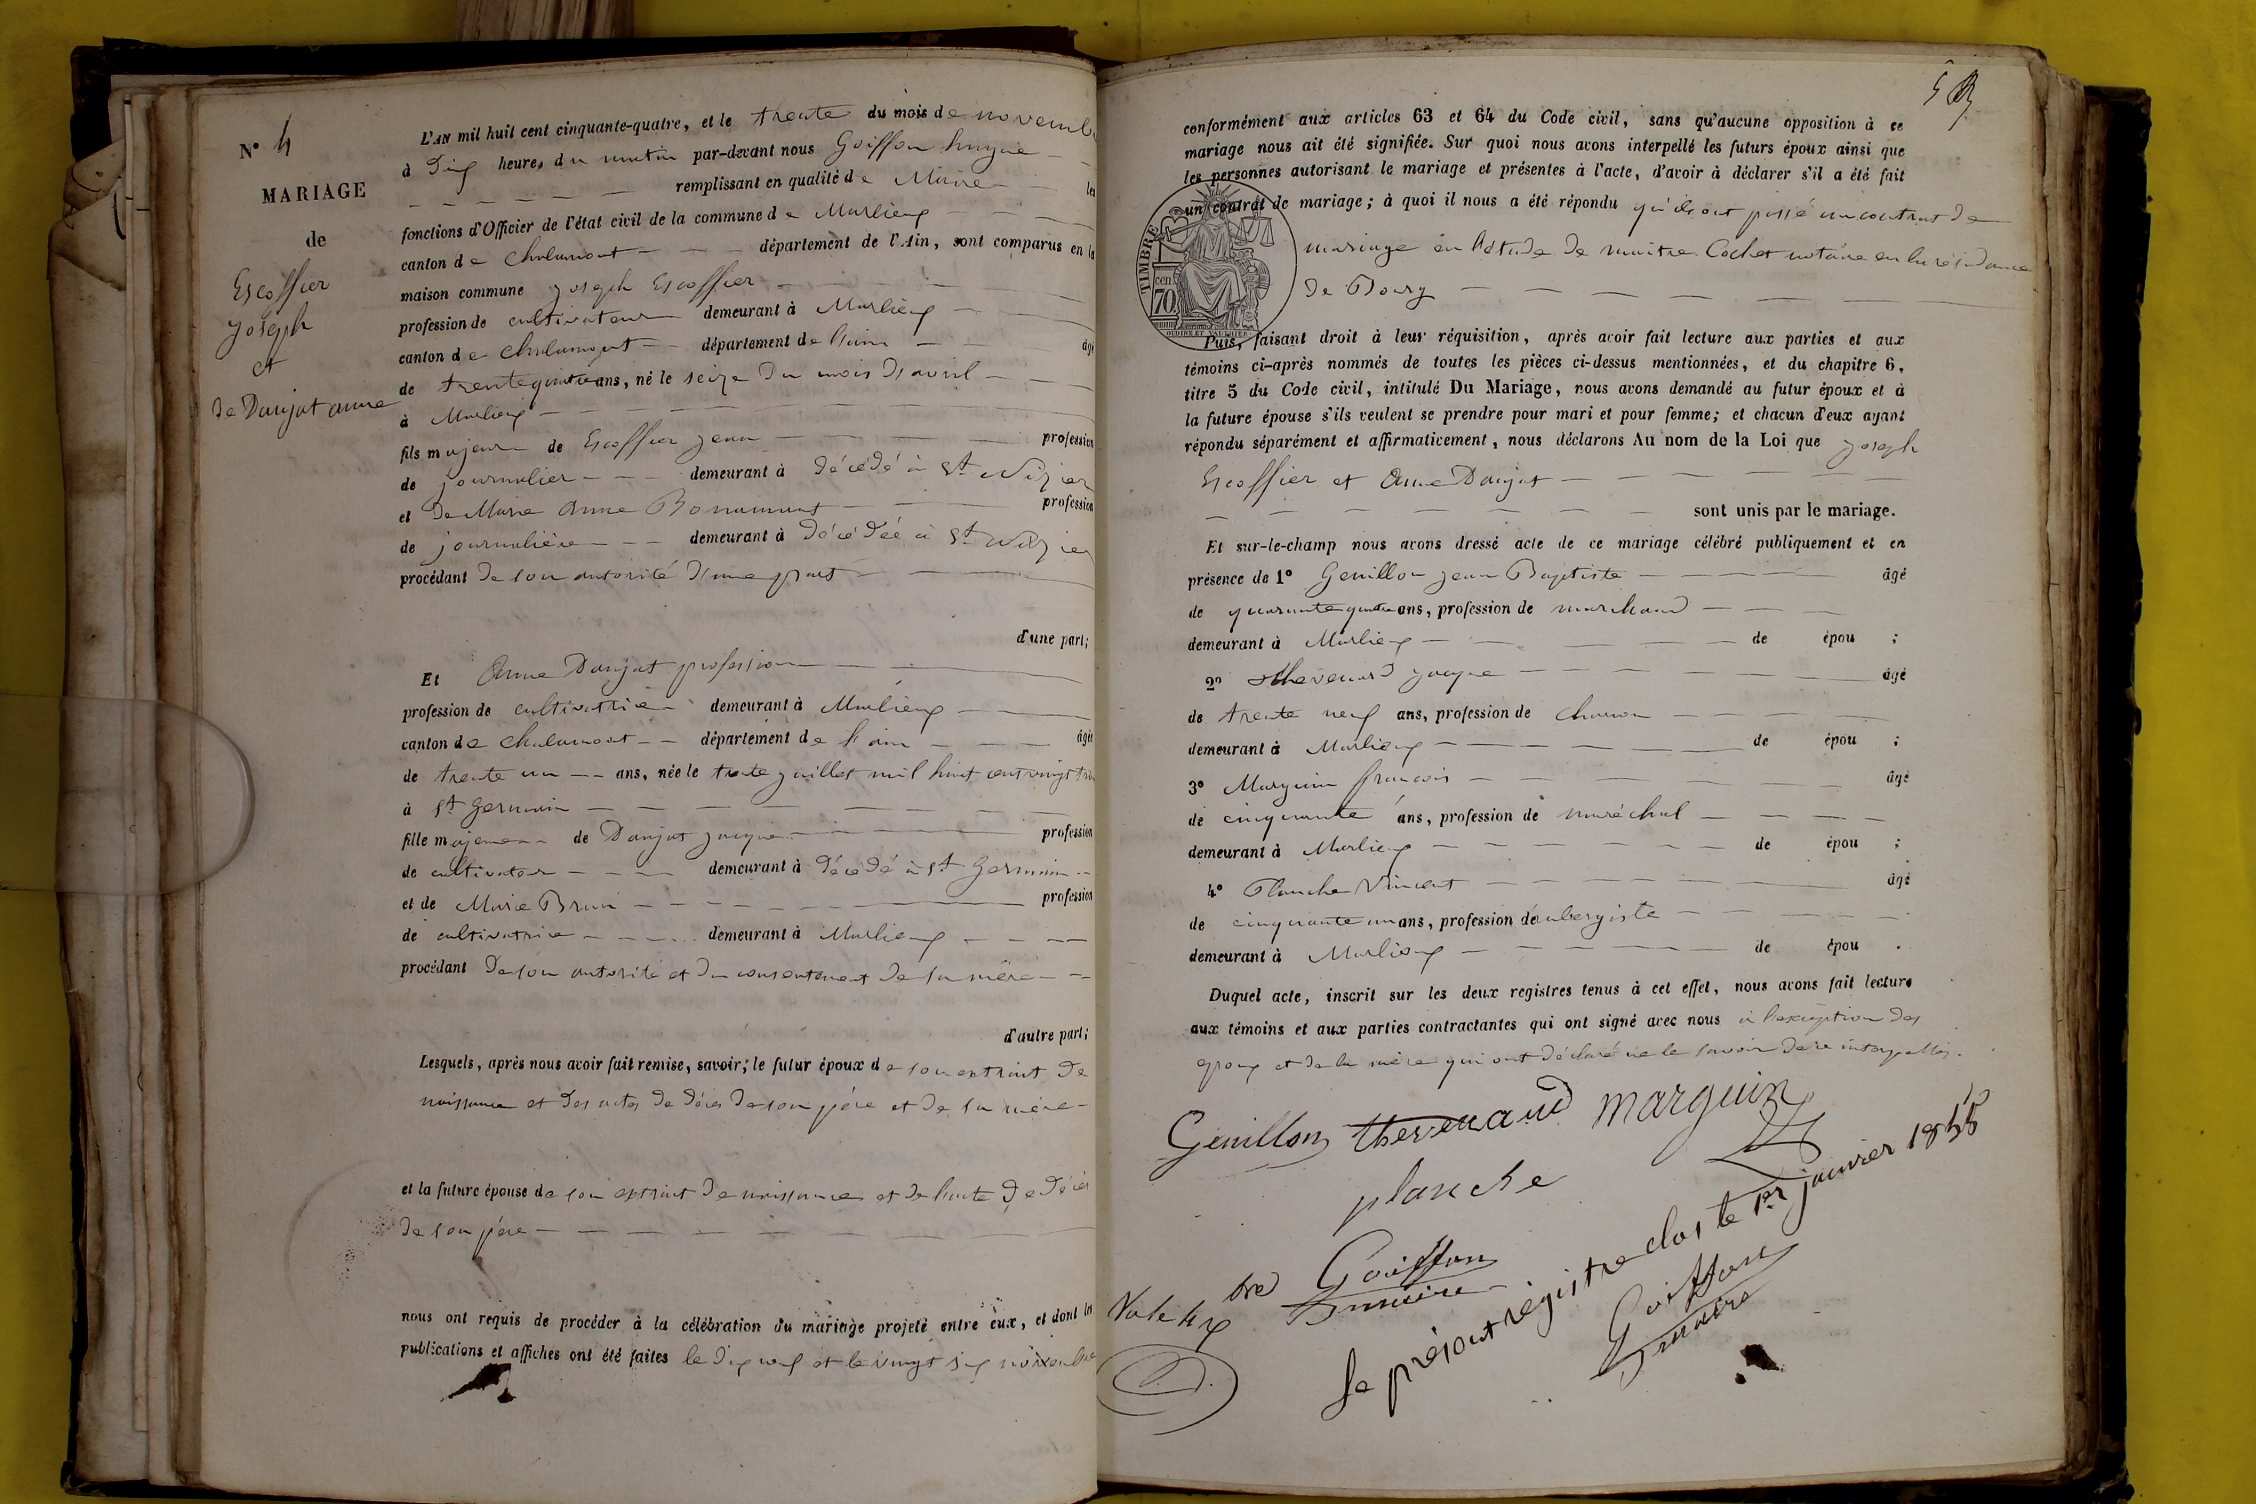 N° 4
MARIAGE
de
Escoffier
joséph
et
de Danjat anne
L'AN mil huit cent cinquante-quatre, et le trente du mois de novembre
à dix heures du matin par-devant nous Goiffon hugue
remplissant en qualité de Maire les
fonctions d'Officier de l'état civil de la commune de Marlieux
canton de chalamont département de l'Ain, sont comparus en la
maison commune joseph Escoffier
profession de cultivateur demeurant à Marlieux
canton de chalamont département de l'ain âgé
de trente quatre ans, né le seize du mois d'avril
à Marlieux
fils majeur de Escoffier jean profession
de journalier demeurant à décédé à St Nizier
et de Marie Anne profession
de journalière demeurant à décédée à St Nizier
procédant de son autorité d'une part
d'une part;
Et Anne Danjat profession
profession de cultivatrice demeurant à Marlieux
canton de chalamont département de l'ain âgée
de trente un ans, née le trente juillet mil huit cent vingt trois
à St Germain
fille majeure de Danjat jacque profession
de cultivateur demeurant à décédé à St Germain
et de Marie Brun profession
de cultivatrice demeurant à Marlieux
procédant de son autorité et du consentement de sa mère
d'autre part;
Lesquels, après nous avoir fait remise, savoir; le futur époux de son extrait de
naissance et des actes de décès de son père et de sa mère
et la future épouse de son extrait de naissance et de l'acte de décès
de son père
nous ont requis de procéder à la célébration du mariage projeté entre eux, et dont les
publications et affiches ont été faites le dix neuf et le vingt six novembre
conformément aux articles 63 et 64 du Code civil, sans qu'aucune opposition à ce
mariage nous ait été signifiée. Sur quoi nous avons interpellé les futurs époux ainsi que
les personnes autorisant le mariage et présentes à l'acte, d'avoir à déclarer s'il a été fait
un contrat de mariage; à quoi il nous a été répondu qu'ils ont passé un contrat de
mariage en l'étude de maitre Cochet notaire en la résidance
de Bourg
TIMBRE
cen
70
Puis, faisant droit à leur réquisition, après avoir fait lecture aux parties et aux
témoins ci-après nommés de toutes les pièces ci-dessus mentionnées, et du chapitre 6,
titre 5 du Code civil, intitulé Du Mariage, nous avons demandé au futur époux et à
la future épouse s'ils veulent se prendre pour mari et pour femme; et chacun d'eux ayant
répondu séparément et affirmativement, nous déclarons Au nom de la Loi que joseph
Escoffier et Anne Danjat
sont unis par le mariage.
Et sur-le-champ nous avons dressé acte de ce mariage célébré publiquement et en
présence de 1° Genillon jean Baptiste âgé
de quarante quatre ans, profession de marchand
demeurant à Marlieux de épou ;
2° thevenard jacque âgé
de trente neuf ans, profession de charon
demeurant à Marlieux de épou ;
3° Marguin francois âgé
de cinquante ans, profession de maréchal
demeurant à Marlieux de épou ;
4° Planche Vincent âgé
de cinquante un ans, profession de aubergiste
demeurant à Marlieux de épou .
Duquel acte, inscrit sur les deux registres tenus à cet effet, nous avons fait lecture
aux témoins et aux parties contractantes qui ont signé avec nous à l'exception des
epoux et de la mère qui ont déclaré ne le savoir de ce interpellés.
Genillon thevenard marguin
planche
Goiffon
maire
Le présent registre clos le 1er janvier 1855
Goiffon
maire